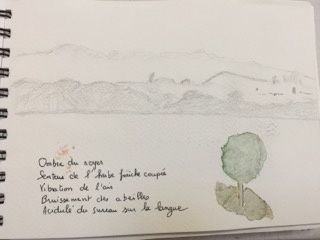 Ombre du noyer
Senteur de l'herbe fraîche coupée
Vibration de l'air
Bruissement des abeilles
Acidulé du sureau sur la langue